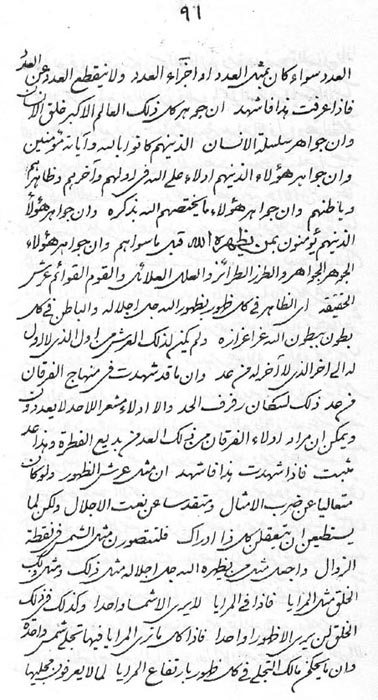 ٩٦
العدد سواء كان بمثل العدد او اجزاء العدد ولا ينقطع العدد عن العدد
فاذا عرفت هذا فاشهد ان جوهر كل ذلك العالم الاكبر خلق الانسان
وان جواهر سلسلة الانسان الذينهم كانوا بالله وآياته مؤمنين
وان جواهر هؤلاء الذينهم ادلاء على الله فى اولهم وآخرهم وظاهرهم
وباطنهم وان جواهر هؤلاء ما يختصهم الله بذكره وان جواهر هؤلاء
الذينهم يؤمنون بمن يظهره الله قبل ما سواهم وان جواهر هؤلاء
الجوهر الجواهر والطرز الطرائز والعلل العلائل والقوم القوائم عرش
الحقيقة اى الظاهر فى كل ظهور بظهور الله جل اجلاله والباطن فى كل
بطون ببطون الله عز اعزازه ولم يكن لذلك العرش من اول الذى لا اول
له الى آخر الذى لا آخر له من عد وان ما قد شهدت فى منهاج الفرقان
من عد ذلك لسكان رفرف الحد والا ادلاء مشعر الاحد لا يعددون
ويمكن ان مراد ادلاء الفرقان من ذلك العد من بديع الفطرة وهذا عد
مثبت فاذا شهدت هذا فاشهد ان مثل عرش الظهور ولو كان
متعاليا عن ضرب الامثال ومتقدسا عن نعت الاجلال ولكن لما
يستطيعن ان يتعقلن كل ذا ادراك فلتتصورن مثل الشمس فى نقطة
الزوال واجعل مثل من يظهره الله جل اجلاله مثل ذلك ومثل ذلك
الخلق مثل المرايا فاذا فى المرايا لا يرى الا شمسا واحدا وكذلك فى ذلك
الخلق لن يرى الا ظهورا واحدا فاذا كل ما ترى المرايا فيها تجلى شمس واحدة
وان ما يحكى مالك التجلى فى كل ظهور بارتفاع المرايا لما لا يعرفون مجليها